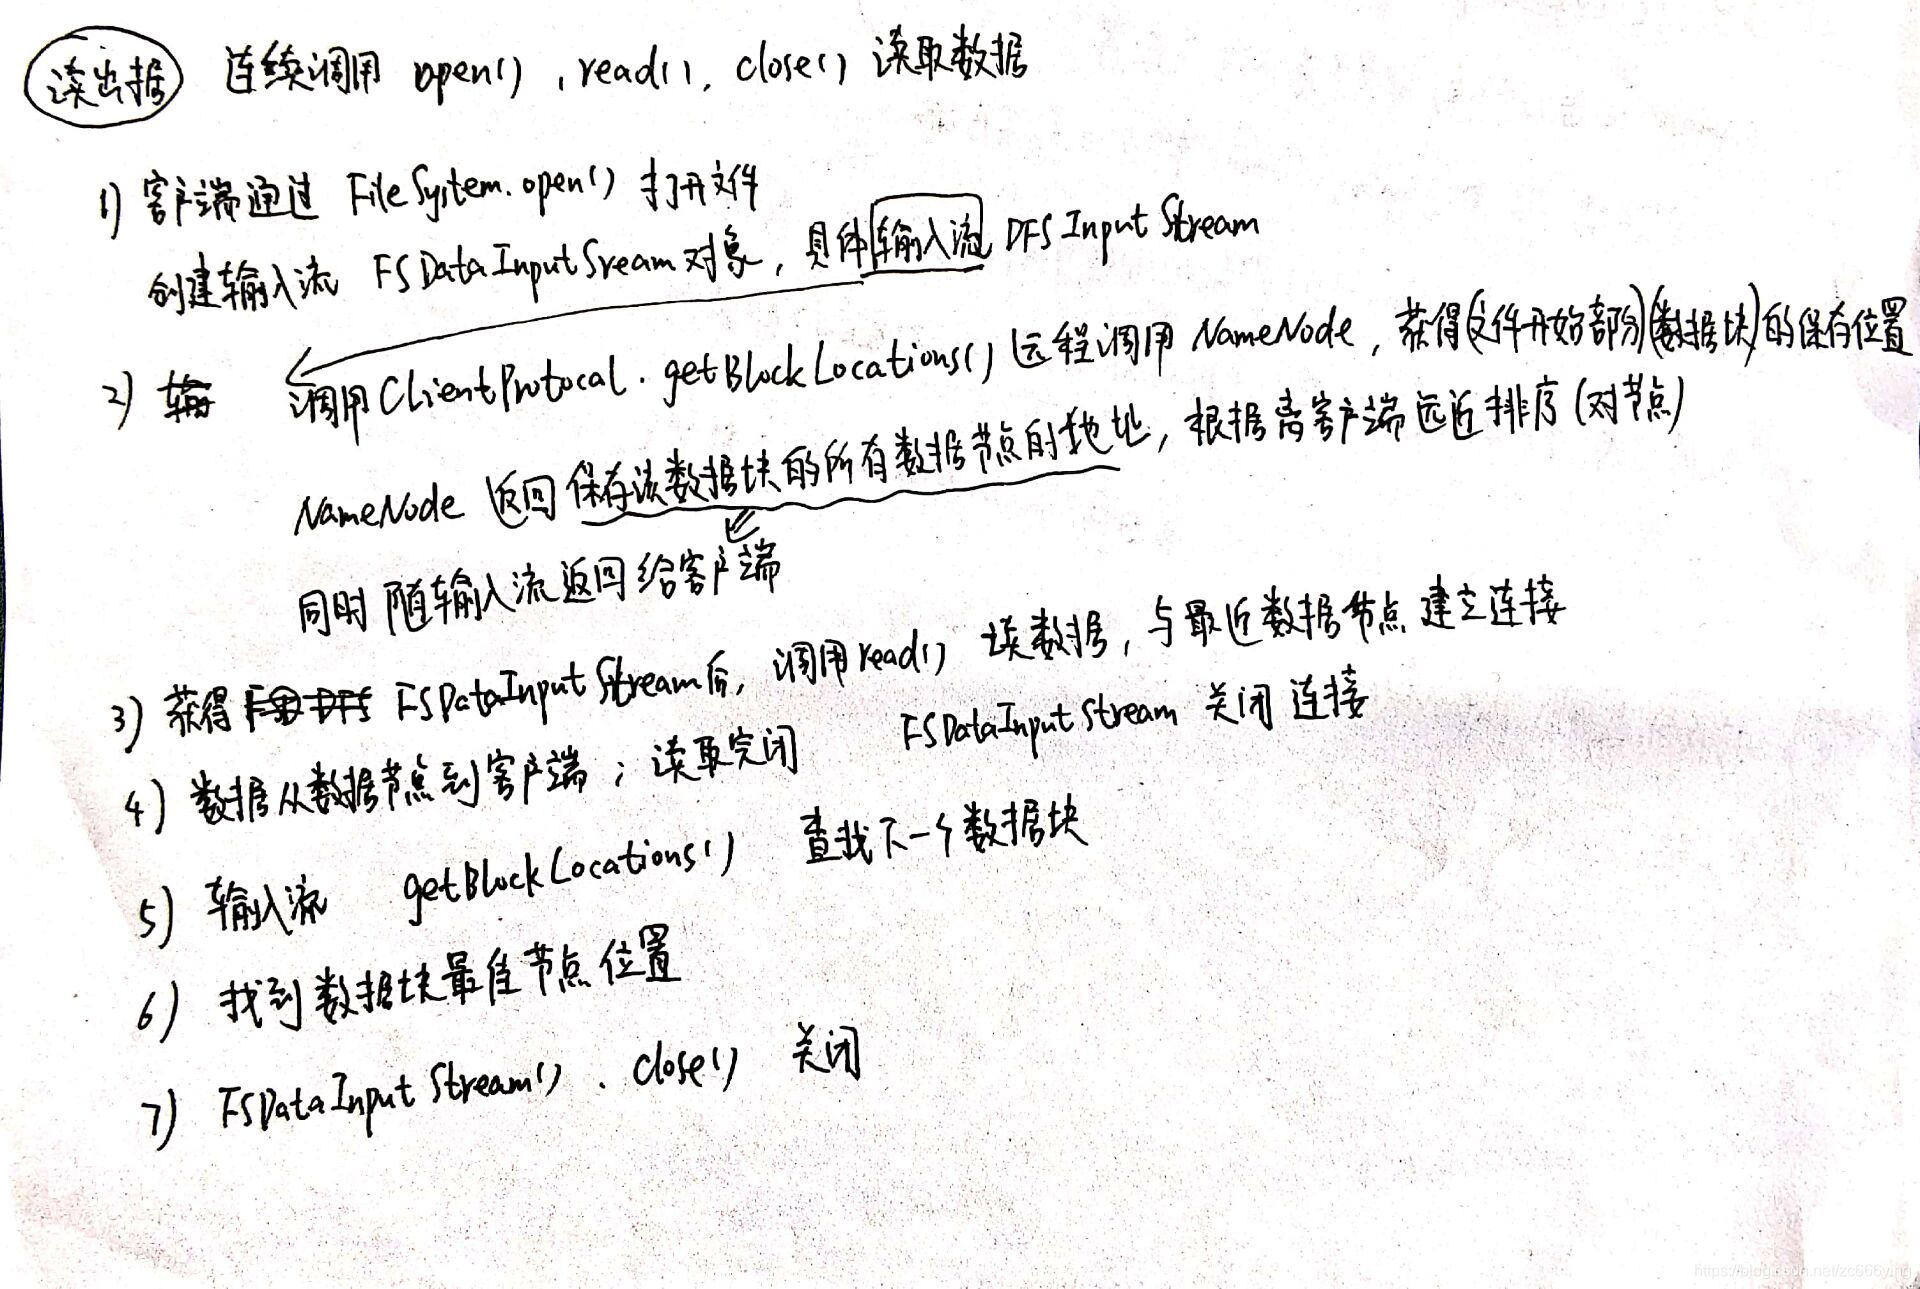 读出据 连续调用 open() , read(), close() 读取数据
1) 客户端通过 FileSystem.open() 打开文件
创建输入流 FSDataInputSream对象, 具体输入流 DFSInputStream
2) 调用ClientProtocal.getBlockLocations() 远程调用 NameNode, 获得(文件开始部分)(数据块)的保存位置
NameNode 返回保存该数据块的所有数据节点的地址, 根据离客户端远近排序(对节点)
同时随输入流返回给客户端
3) 获得 FSDataInputStream后, 调用read() 读数据, 与最近数据节点建立连接
4) 数据从数据节点到客户端; 读取完闭 FSDataInputStream 关闭连接
5) 输入流 getBlockLocations() 查找下一个数据块
6) 找到数据块最佳节点位置
7) FSDataInputStream() . close() 关闭